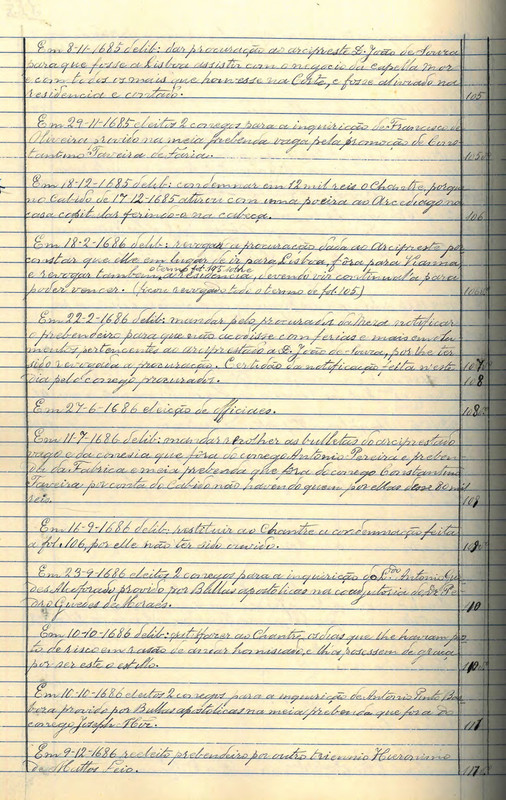 Em 8-11-1685 delib: dar procuração ao arcipreste D. João de Souza
para que fosse a Lisboa assistir com o negocio da capella mor
e com todos os mais que houvesse na Côrte, e fosse
residencia e contado. 105
Em 29-11-1685 eleitos 2 conegos para a inquirição de Francisco
Oliveira provido na meia prebenda vaga pela promoção de Cons-
tantino Taveira de Faria. 105vº
Em 18-12-1685 delib: condemnar em 12 mil reis o Chantre, porque
no Cabido de 17-12-1685 atirou com uma poeira ao Arcediago na
casa capitular ferindo-o na cabeça. 106
Em 18-2-1686 delib: revogar a procuração dada ao Arcipreste por
constar que elle em lugar de ir para Lisboa, fôra para Vianna
o termo fol. 105 sobre
e revogar tambem a residencia, devendo vir continual-a para
poder vencer. (Ficou revogado o termo de fol 105) 106vº
Em 22-2-1686 delib: mandar pelo procurador da Meza notificar
o prebendeiro para que não acodisse com ferias e mais
mentos, pertencentes ao arciprestado a D. João de Souza, por lhe ter
sido revogada a procuração. Certidão da notificação feita n'este 107vº
dia pelo conego procurador. 108
Em 27-6-1686 eleição de officiaes. 108vº
Em 11-7-1686 delib: mandar recolher as bulletas do arciprestado
vago e da conesia que fôra do conego Antonio Pereira e preben-
da da Fabrica e meia prebenda que era do conego Constantino
Taveira por conta do Cabido não havendo quem por ellas désse 80 mil
reis. 109
Em 16-9-1686 delib: restituir ao Chantre a condemnação feita
a fol. 106, por elle não ter sido ouvido. 109vº
Em 23-9-1686 eleitos 2 conegos para a inquirição do Antonio Gue-
des provido por Bullas apostolicas na coadjutoria de Dr Pe-
dro Guedes de Moraes. 110
Em 10-10-1686 delib: satisfazer ao Chantre, os dias que lhe haviam pos-
to de risco em rasão de andar homisiado, e lh'a posessem de graça,
por ser este o estillo. 110vº
Em 10-10-1686 eleitos 2 conegos para a inquirição de Antonio Pinto Bar-
bosa provido por Bullas apostolicas na meia prebenda que fora do
conego Joseph 111
Em 9-12-1686 reeleito prebendeiro por outro triennio Hieronimo
de Mattos Feio. 111vº